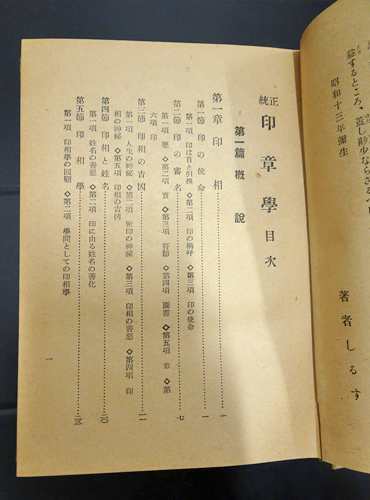 益するところ、蓋し尠少ならざるべし
昭和十三年彌生
著者しるす
正統 印章學 目次
第一篇 概說
第一章 印相………一
第一節 印の使命………一
第一項 印は首と引換 ◇第二項 印の稱呼 ◇第三項 印の使命
第二節 印の審名………七
第一項 璽 ◇第二項 寶 ◇第三項 符節 ◇第四項 圖書 ◇第五項 章 ◇第
六項 印
第三節 印相の吉凶………一一
第一項 人生の神祕 ◇第二項 密印の神祕 ◇第三項 印相の善惡 ◇第四項 印
相の神祕 ◇第五項 印相の吉凶
第四節 印相と姓名………二〇
第一項 姓名の善惡 ◇第二項 印に由る姓名の善化
第五節 印相學………二三
第一項 印相學の回顧 ◇第二項 學問としての印相學
一